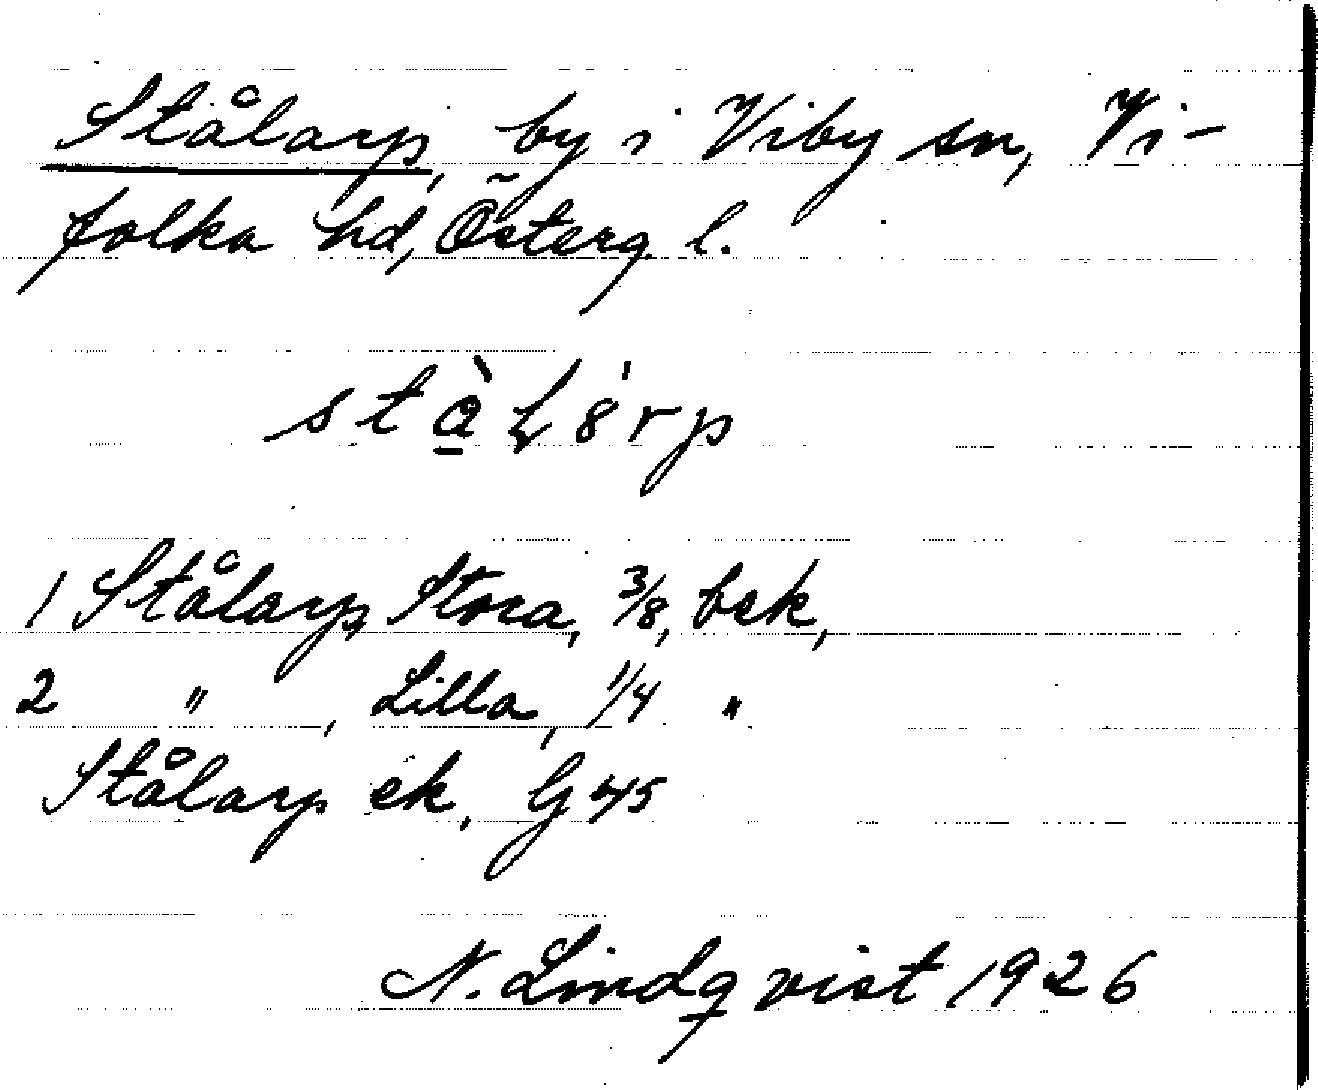 Stålarp, by i Viby sn, Vi-
folka hd, Österg. l.
1 Stålarp, Stora, 3/8, bek,
2 " , Lilla, 1/4 "
Stålarp ek, G 45
N. Lindqvist 1926